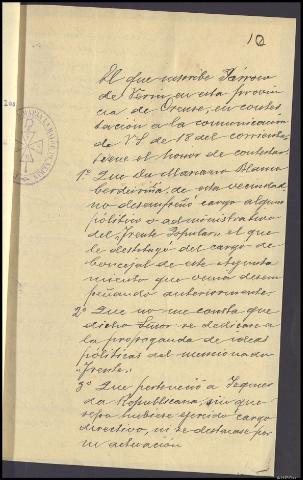 10
El que suscribe Párroco
de Verin, en esta provin
cia de Orense, en contes
tación a la comunicación
de VS de 18 del corriente,
tiene el honor de contestar
1º Que Dn Mariano Blanco
de esta vecindad
no desempeñó cargo alguno
político o administrativo
del "Frente Popular" el que
le destituyó del cargo de
Concejal de este Ayunta
miento que venia desem
peñando anteriormente.
2º Que no me consta que
dicho Señor se dedicase a
la propaganda de ideas
políticas del mencionado
"Frente"
3º Que perteneció a Izquier
da Republicana, sin que
sepa hubiese ejercido cargo
directivo, ni se destacase por
su actuación